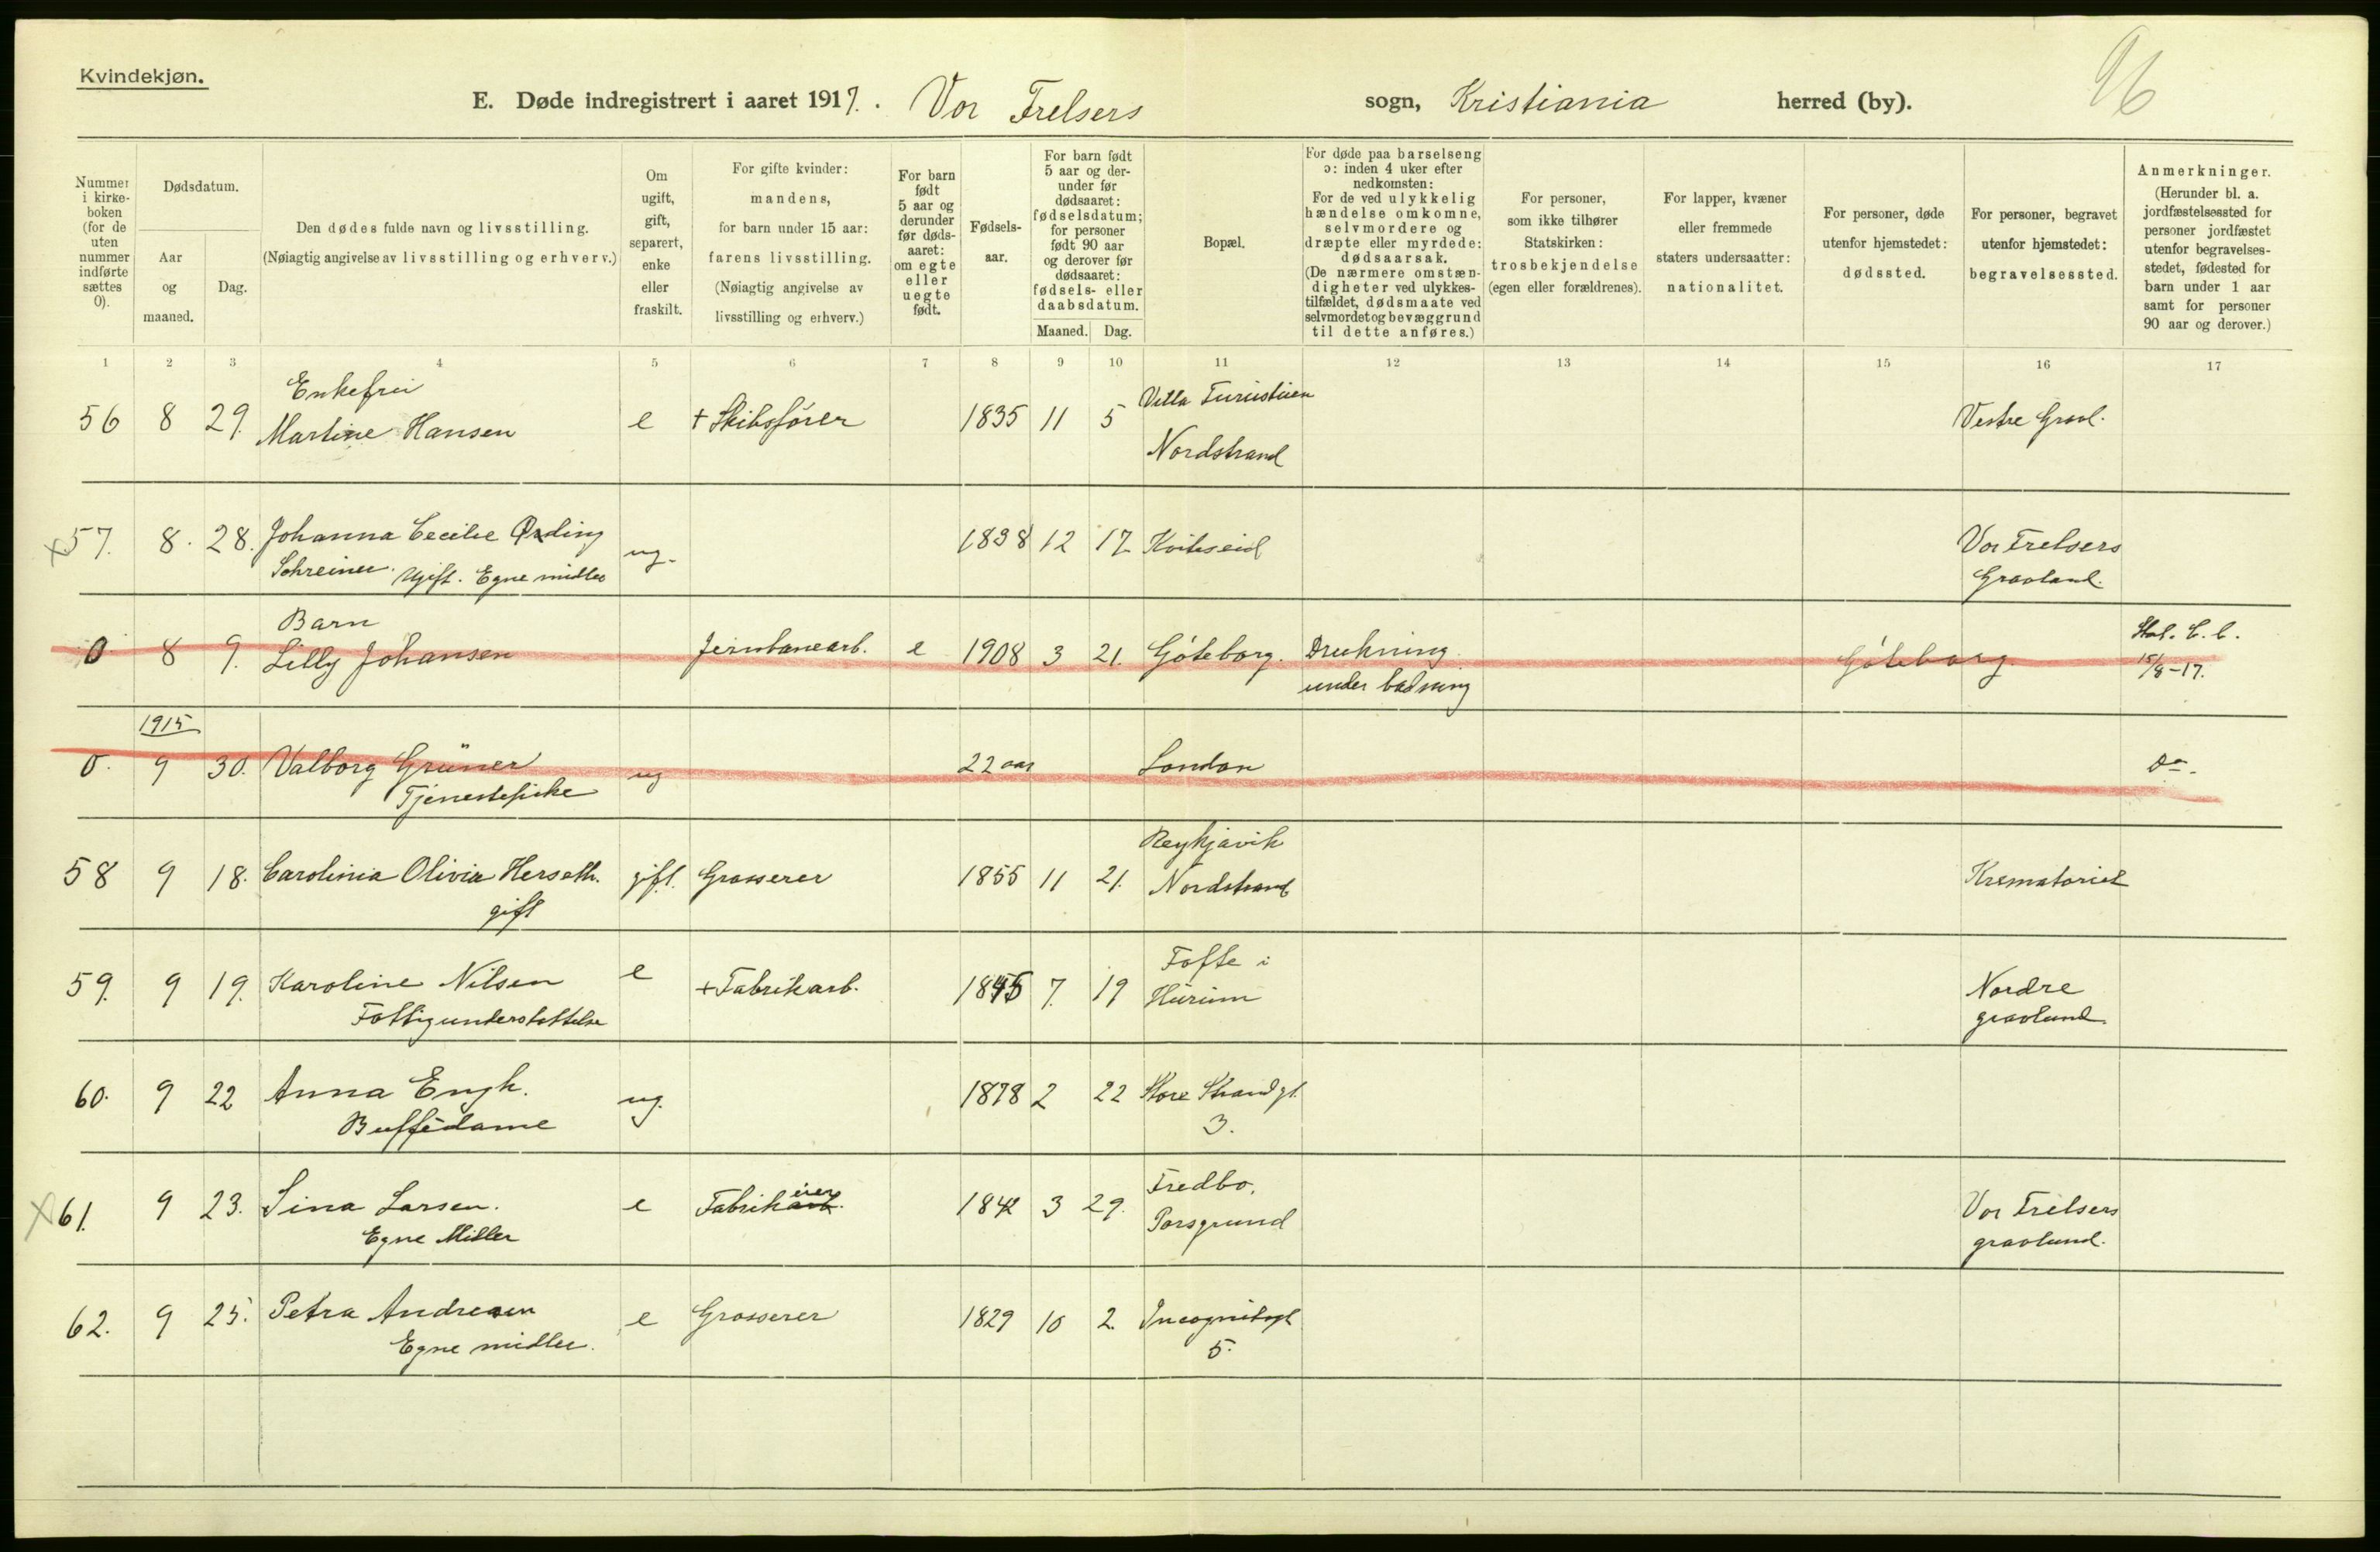 Kvindekjøn.
E. Døde indregistrert i aaret 1917. Vor Frelsers sogn, Kristiania herred (by).
96
Nummer i kirke-boken (for de uten nummer indførte sættes 0).
Dødsdatum.
Aar og maaned.
Dag.
Den dødes fulde navn og livsstilling.
(Nøiagtig angivelse av livsstilling og erhverv.)
Om ugift, gift, separert, enke eller fraskilt.
For gifte kvinder: mandens, for barn under 15 aar: farens livsstilling. (Nøiagtig angivelse av livsstilling og erhverv.)
For barn født 5 aar og derunder før døds-aaret: om egte eller uegte født.
Fødsels-aar.
For barn født 5 aar og der-under før dødsaaret: fødselsdatum; for personer født 90 aar og derover før dødsaaret: fødsels- eller daabsdatum.
Maaned. Dag.
Bopæl.
For døde paa barselseng ɔ: inden 4 uker efter nedkomsten: For de ved ulykkelig hændelse omkomne, selvmordere og dræpte eller myrdede: dødsaarsak. (De nærmere omstæn-digheter ved ulykkes-tilfældet, dødsmaate ved selvmordet og bevæggrund til dette anføres.)
For personer, som ikke tilhører Statskirken: trosbekjendelse (egen eller forældrenes).
For lapper, kvæner eller fremmede staters undersaatter: nationalitet.
For personer, døde utenfor hjemstedet: dødssted.
For personer, begravet utenfor hjemstedet: begravelsessted.
Anmerkninger. (Herunder bl. a. jordfæstelsessted for personer jordfæstet utenfor begravelses-stedet, fødested for barn under 1 aar samt for personer 90 aar og derover.)
1 2 3 4 5 6 7 8 9 10 11 12 13 14 15 16 17
Enkefru
56 8 29. Martine Hansen e + Skibsfører 1835 11 5 Villa
Nordstrand Vestre Gravl.
57. 8. 28. Johanna Cecilie Ording ug. 1838 12 17 Kviteseid Vor Frelsers
Schreiner. Ugift. Egne midler Gravlund.
Barn
0 8 9. Lilly Johansen Jernbanearb. e 1908 3 21. Göteborg. Drukning Göteborg. Stat. C. C.
under badning 15/8-17.
1915
0. 9 30. Valborg Grüner ug 22 aar London Do.
Tjenestepike
58 9 18. Carolinia Olivia Herseth. gift. Grosserer 1855 11 21. Reykjavik
gift Nordstrand Krematoriet
59. 9 19. Karoline Nilsen e + Fabrikarb. 1845 7. 19 Tofte i
Fattigunderstøttelse Hurum Nordre
gravlund.
60. 9 22 Anna Engh. ug. 1878 2 22 Store Strandgt.
Buffédame 3.
61. 9 23. Sina Larsen. e Fabrikeier 1842 3 29. Fredbo,
Egne Midler Porsgrund Vor Frelsers
gravlund.
62. 9 25. Petra Andresen e Grosserer 1829 10 2. Incognitogt
Egne midler. 5.